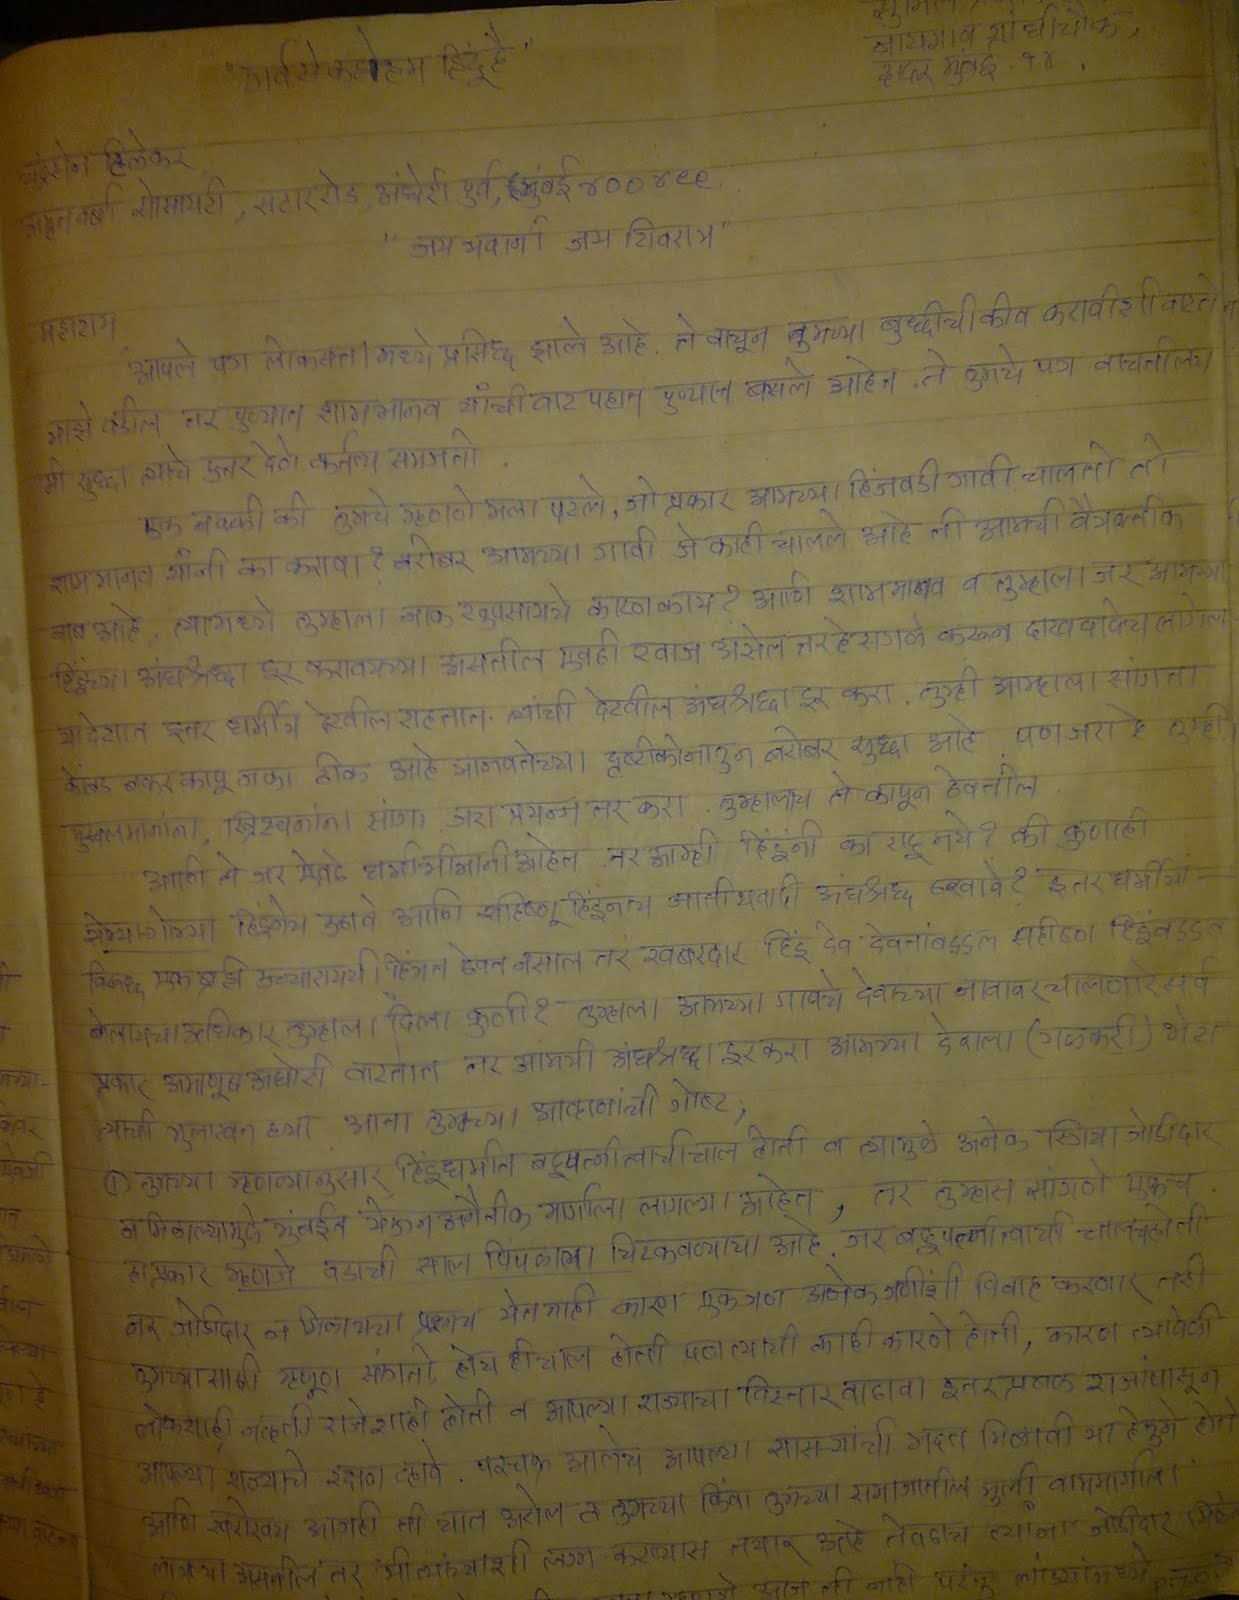 नायगाव गांधीचौक,
दादर मुंबई. १४.
"गर्वसे कहो हम हिंदू है"
चंद्रसेन टिळेकर
सोसायटी, सहाररोड, अंधेरी पुर्व, मुंबई ४०००९९.
"जय भवानी जय शिवराय"
महाशय
आपले पत्र लोकसत्तामध्ये प्रसिद्ध झाले आहे. ते वाचून तुमच्या बुध्दीची कीव करावीशी वाटते
माझे वडील तर पुण्यात शाम मानव यांची वाट पहात पुण्यात बसले आहेत. ते तुमचे पत्र वाचतीलच
मी सुध्दा त्याचे उत्तर देणे कर्तव्य समजतो.
एक नक्की की तुमचे म्हणणे मला पटले, जो प्रकार आमच्या हिंजवडी गावी चालतो तो
शाम मानव यांनी का करावा? बरोबर आमच्या गावी जे काही चालले आहे ती आमची वैयक्तीक
बाब आहे. त्यामध्ये तुम्हाला नाक खुपसायचे कारण काय? आणि शाम मानव व तुम्हाला जर आमच्या
हिंदूंच्या अंधश्रध्दा दूर करावयाच्या असतील एवढी खाज असेल तर हे सगळे करून दाखवावेच लागेल
या देशात इतर धर्मीय देखील राहतात. त्यांची देखील अंधश्रध्दा दूर करा. तुम्ही आम्हाला सांगता
कोंबड बकर कापू नका ठीक आहे मानवतेच्या दृष्टीकोनातुन बरोबर सुध्दा आहे पण जरा हे तुम्ही
मुसलमानांना, ख्रिश्चनांना सांगा जरा प्रयत्न तर करा. तुम्हालाच ते कापून ठेवतील.
आणि ते जर एवढे धर्माभीमानी आहेत तर आम्ही हिंदूंनी का राहू नये? की कुणाही
हिंदूंनीच उठावे आणि सहिष्णू हिंदूंनाच जातीयवादी अंधश्रध्द ठरवावे? इतर धर्मीयां-
विरूध्द एक ब्रही उच्चारायची हिंमत ठेवत नसाल तर खबरदार हिंदू देव देवतांबद्दल सहीष्णू हिंदूंबद्दल
बोलायचा अधिकार तुम्हाला दिला कुणी? तुम्हाला आमच्या गावचे देवाच्या नावावर चालणारे सर्व
प्रकार अमानूष अघोरी वाटतात तर आमची अंधश्रध्दा दूर करा आमच्या देवाला (गळकरी) भेटा
त्याची मुलाखत घ्या आता तुमच्या आव्हानांची गोष्ट;
① तुमच्या म्हणण्यानुसार हिंदूधर्मात बहूपत्नीत्वाची चाल होती व त्यामुळे अनेक स्त्रिया जोडीदार
न मिळाल्यामुळे मुंबईत येऊन अनैतीक मार्गाला लागल्या आहेत, तर तुम्हास सांगणे एकच.
हा प्रकार म्हणजे वडाची साल पिंपळाला चिटकवण्याचा आहे. जर बहूपत्नीत्वाची चालच होती
तर जोडीदार न मिळायचा प्रश्नच येत नाही कारण एकजण अनेक जणींशी विवाह करणार तरी
तुमच्यासाठी म्हणून सांगतो होय ही चाल होती पण त्याची काही कारणे होती, कारण त्यावेळी
लोकशाही नव्हती राजेशाही होती व आपल्या राज्याचा विस्तार वाढावा इतर प्रबळ राजांपासून
आपल्या राज्याचे रक्षण व्हावे. परचक्र आलेच आपल्या सासऱ्यांची मदत मिळावी या हेतूने होते
आणि खरोखरच आजही ती चाल असेल व तुमच्या किंवा तुमच्या समाजातील मुली वाममार्गाला
लागल्या असतील तर मी त्यांच्याशी लग्न करण्यास तयार आहे तेवढाच त्यांना जोडीदार मिळेल
आज ती नाही परंतु